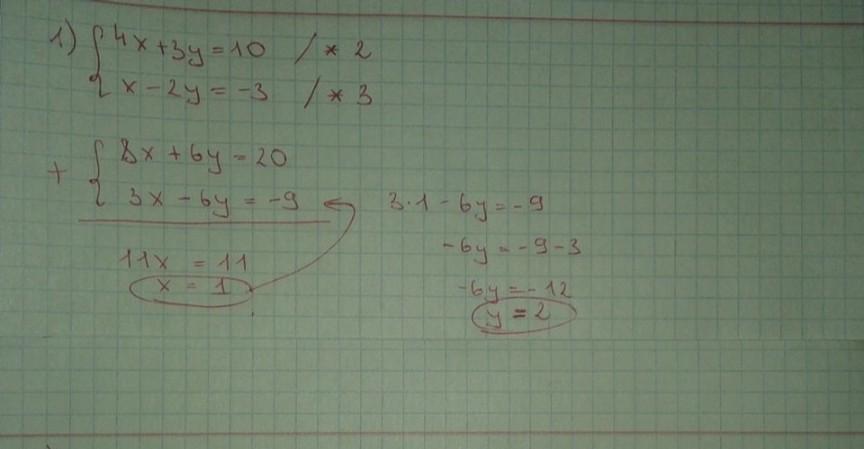 1) { 4x + 3y = 10 / * 2
x - 2y = -3 / * 3
+ { 8x + 6y = 20
3x - 6y = -9
11x = 11
x = 1
3·1 - 6y = -9
-6y = -9-3
-6y = -12
y = 2